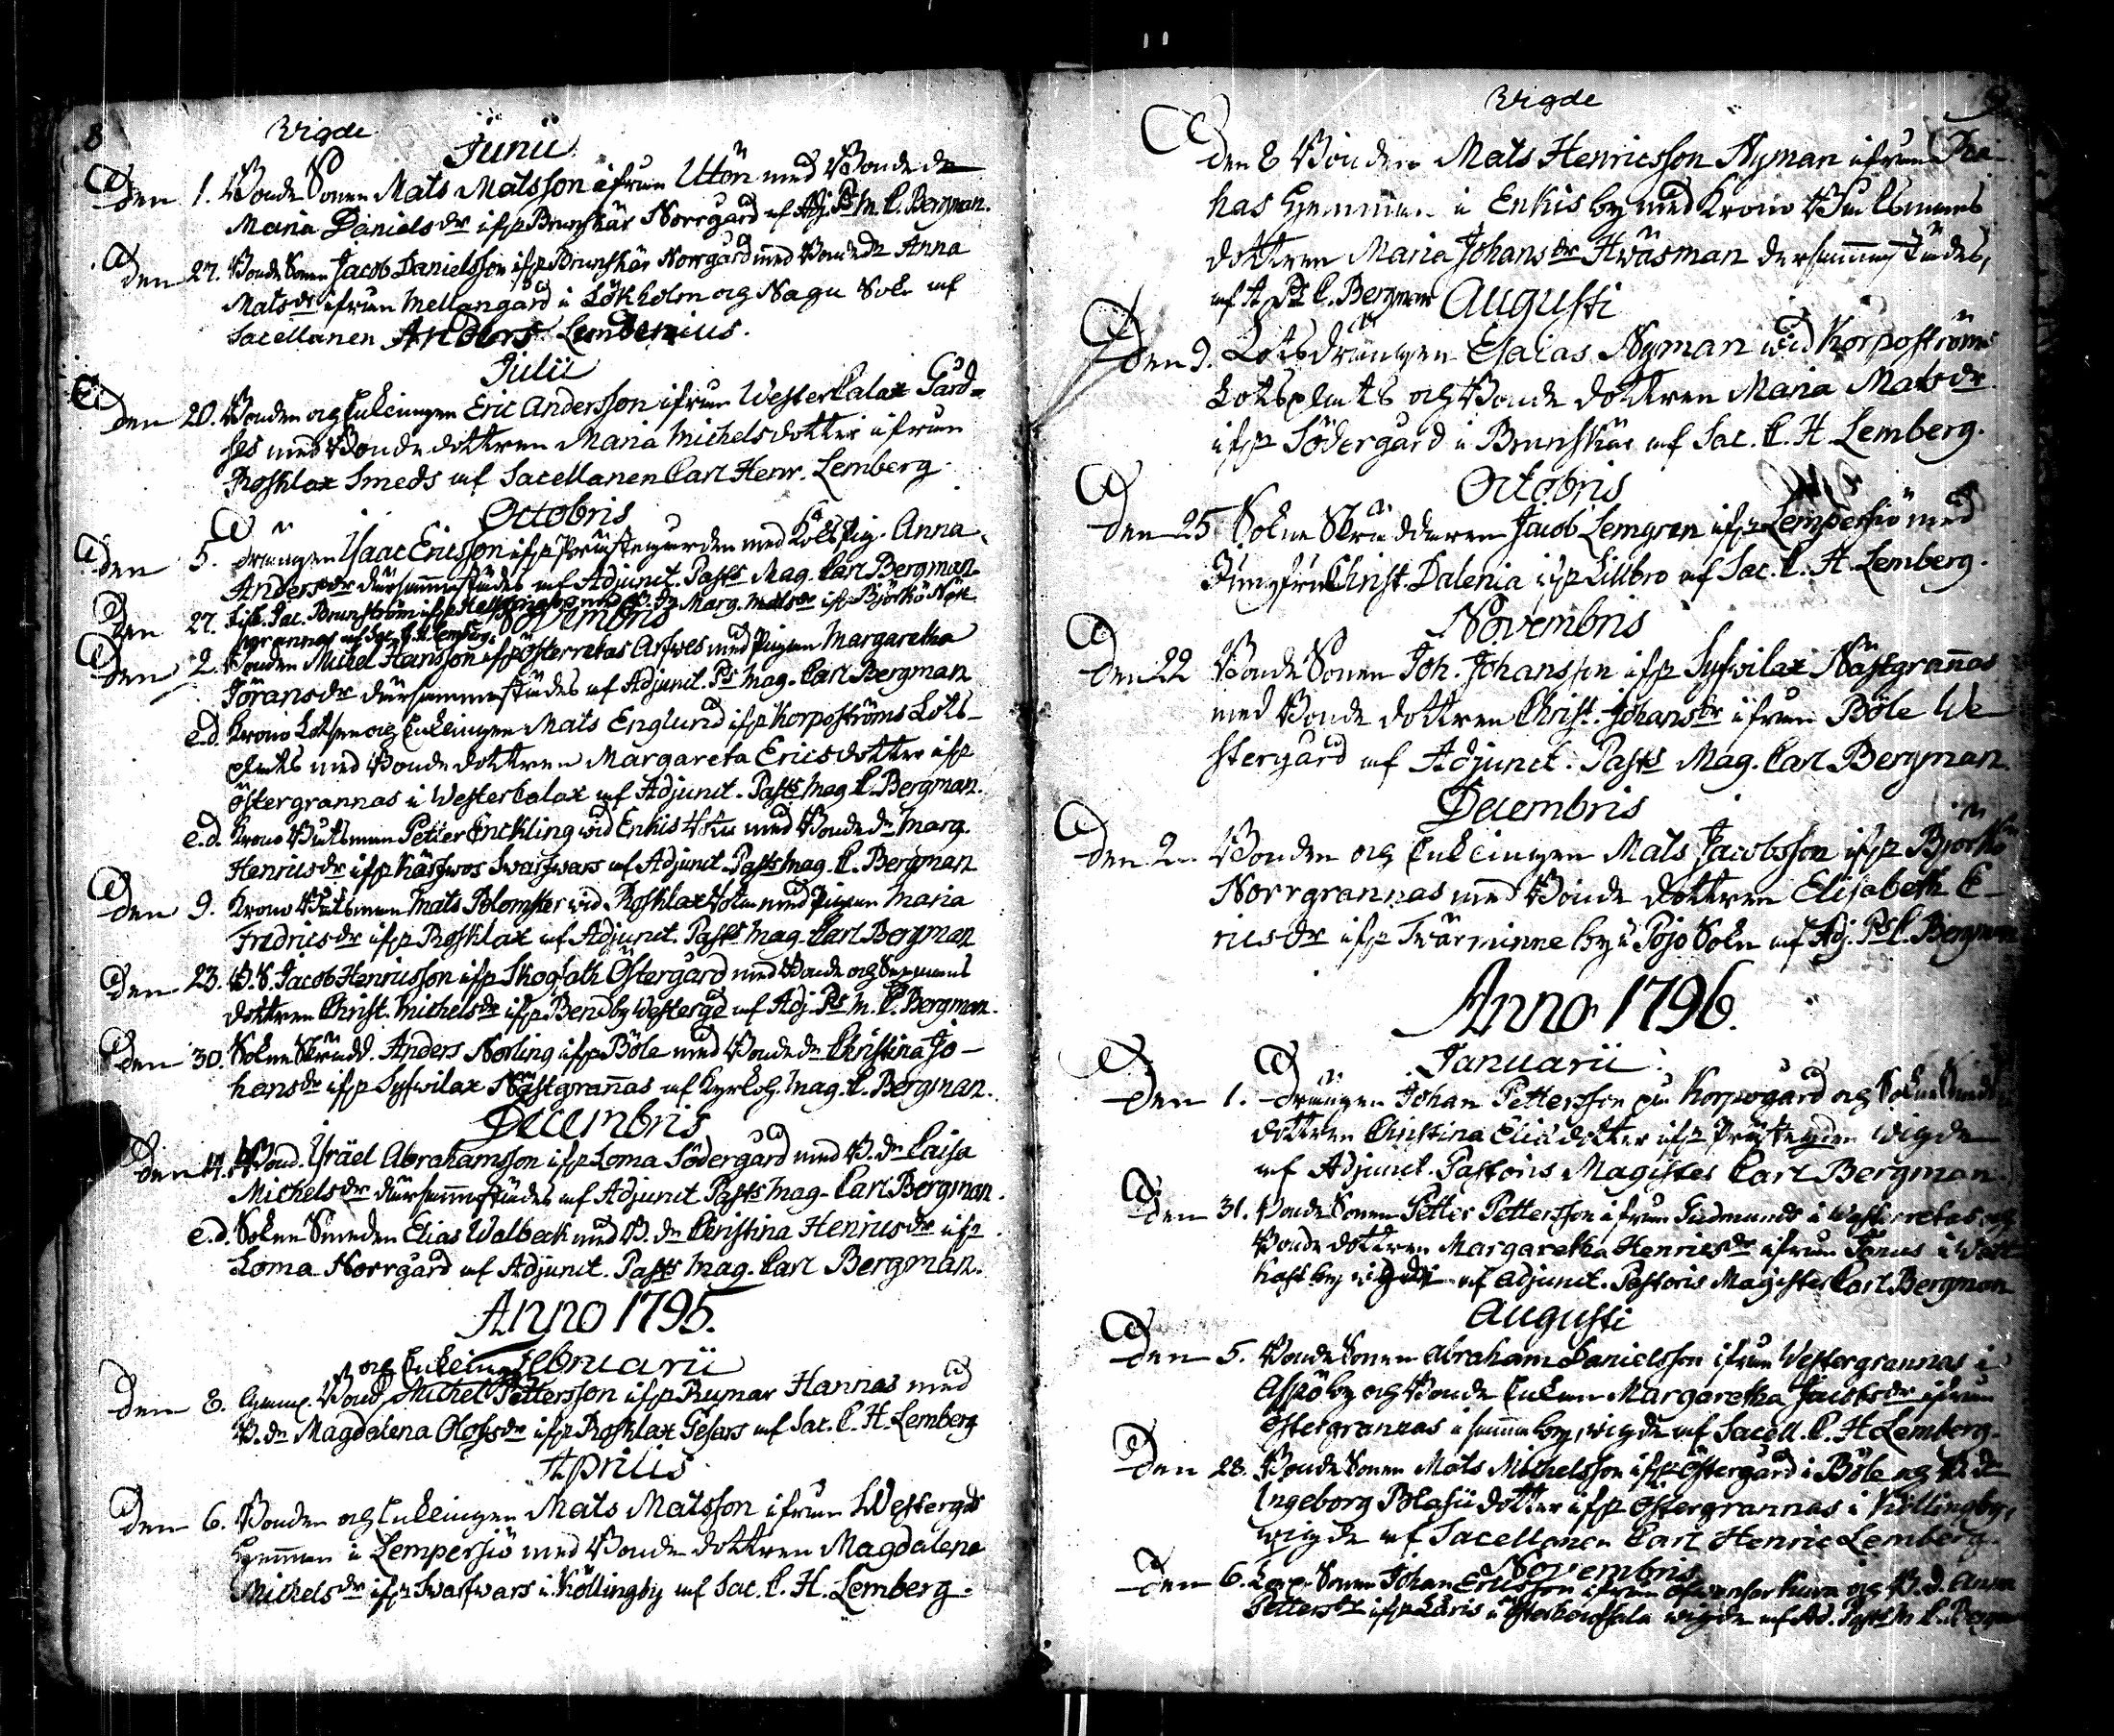 8
Wigde
Junii
Den 1. Bonde Sonen Mats Matsson ifrån Utön med Bonde dr
Maria Danielsdr ifr Brunskär Norrgård af Adj. Ps M. C. Bergman.
den 27. Bonde Sonen Jacob Danielsson ifr Brunskär Norrgård med Bonde dr Anna
Matsdr ifrån Mellangård i Lökholm og Nagu Sokn af
Sacellanen Anders Lembenius.
Julii
den 20. Bonden og Enklingen Eric Andersson ifrån Westerkalax Gård=
jes med Bonde dottren Maria Michelsdotter ifrån
Roshlax Smeds af Sacellanen Carl Henr. Lemberg
Octobris
den 5. drängen Isaac Ericsson ifr Prästegården med Pig. Anna
Andersdr därsammastädes af Adjunct. Pasts Mag. Carl Bergman.
den 27. Jac. Brunström ifr Marg. Matsdr ifr Björkö Norr
grannas af Sac. C. H. Lemberg.
Novembris
den 2. Bonden Michel Hansson ifr Österretas Arfves med Pigan Margaretha
Jöransdr därsammastädes af Adjunct. Ps Mag. Carl Bergman
e.d. Krono Lotsen og Enklingen Mats Englund ifr Korpoströms Lots-
plats med Bonde dottren Margareta Ericsdotter ifr
Östergrannas i Westerkalax af Adjunct. Pasts Mag C. Bergman.
e.d. Krono Båtsman Petter Enckling wid Enkis med Bonde dr Marg.
Henricsdr ifr Kärfwos Swarfwars af Adjunct. Pasts Mag. C. Bergman
den 9. Krono Båtsman Mats Blomster wid Roshlax Rotan med Pigan Maria
Fredricsdr ifr Roshlax af Adjunct. Pasts Mag. Carl Bergman
den 23. B. S. Jacob Henricsson ifr Skogsath Östergård med Bonde og
dottren Christ. Michelsdr ifr Bendby Westergd af Adj. Ps M. C. Bergman.
den 30. Sokne Skrädd. Anders Norling ifr Böle med Bonde dr Christina Jo-
hansdr ifr Syfwilax Nästgrannas af Mag. C. Bergman.
Decembris
den 14. Bond. Israel Abrahamsson ifr Loma Södergård med B. dr Caisa
Michelsdr därsammastädes af Adjunct Pasts Mag. Carl Bergman.
e.d. Sokne Smeden Elias Walbeck med B. dr Christina Henricsdr ifr
Loma Norrgård af Adjunct. Pasts Mag. Carl Bergman.
Anno 1795.
Februarii
og Enkling
den 8. Bond. Michel Pettersson ifr Rumar Hannas med
B. dr Magdalena Olofsdr ifr Roshlax Gesars af Sac. C. H. Lemberg
Aprilis
den 6. Bonden og Enklingen Mats Matsson ifrån Westergds
Hemman i Lempersiö med Bonde dottren Magdalena
Michelsdr ifr Swarfwars i Köllingby af Sac. C. H. Lemberg.
9
Wigde
den 8 Bonden Mats Henricsson Nyman ifrån
has Hemman i Enkis by med Krono Båtsmans
dottren Maria Johansdr Hwäsman dersammastädes,
af A. Ps C. Bergman
Augusti
den 9. Lotsdrängen Esaias Nyman wid Korpoströms
Lotsplats og Bonde dottren Maria Matsdr
ifr Södergård i Brunskär af Sac. C. H. Lemberg.
Octobris
den 25 Sokne Skräddaren Jacob Lemgren ifr Lempersiö med
Jungfru Christ. Dalenia ifr Lillbro af Sac. C. H. Lemberg.
Novembris
den 22 Bonde Sonen Joh. Johansson ifr Syfwilax Nästgrannas
med Bonde dottren Christ. Johansdr ifrån Böle We
stergård af Adjunct. Pasts Mag. Carl Bergman.
Decembris
den 2. Bonden og Enklingen Mats Jacobsson ifr Björkö
Norrgrannas med Bonde dottren Elisabeth E-
ricsdr ifr Twärminne by i Pojo Sokn af Adj. Ps C. Bergman
Anno 1796.
Januarii
den 1. drängen Johan Pettersson på Korpogård og Sokne Smeds
dottren Christina Elisdotter ifr Prästegden wigde
af Adjunct. Pastoris Magister Carl Bergman.
den 31. Bonde Sonen Petter Pettersson ifrån Gudmunds i Westerretas og
Bonde dottren Margaretha Henricsdr ifrån Jonus i Watt
kast by wigde af adjunct. Pastoris Magister Carl Bergman
Augusti
den 5. Bonde Sonen Abraham Danielsson ifrån Westergrannas i
Aspö by og Bonde Enkan Margaretha Jacobsdr ifrån
Östergrannas i samma by, wigde af Sacell. C. H. Lemberg.
den 28. Bonde Sonen Mats Michelsson ifr Östergård i Böle og B. dr
Ingeborg Blasii dotter ifr Östergrannas i Köllingby,
wigde af Sacellanen Carl Henric Lemberg.
Novembris
den 6. Sonen Johan Ericsson ifrån og B. d. Anna
Pettersdr ifr Laris i wigde af Ad. Pasts M. C. Bergman